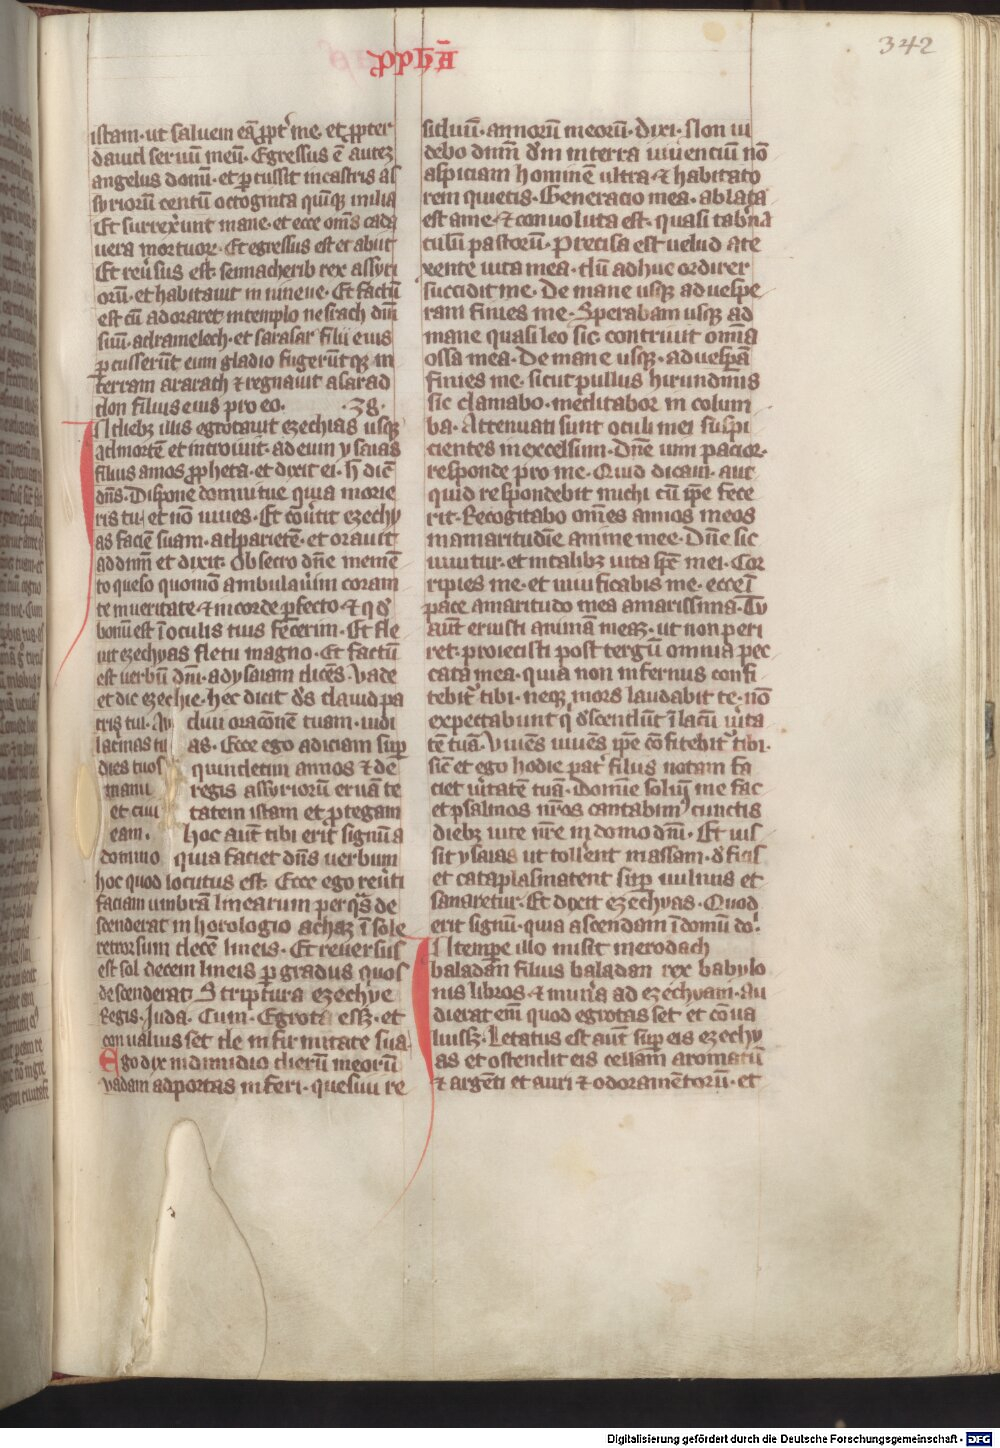 342
ppħā
istam· ut saluem eā ꝓpt̓ me· et ꝓpter
dauid seruū meū· Egressus ē auteꝫ
angelus domī· et ꝑcussit in castris as
syriorū centū octoginta quīqꝫ milia
Et surrex̓unt mane· et ecce om̄s cada
uera mortuorꝫ· Et egressus est et abiit
Et reu̓sus est sennacherib rex assyri
orū· et habitauit in niniue· Et factū
est cū adoraret in templo nesrach dm̄
suū· adramelech· et sarasar filii eius
ꝑcusserūt eum gladio fugerūtqꝫ in
terram ararath ⁊ regnauit asarad
don filius eius pro eo· ·38·
In diebꝫ illis egrotauit ezechias usqꝫ
ad mortē et introiuit· ad eum ysaias
filius amos ꝓpheta· et dixit ei· h̄ dic̄
dn̄s· Dispone domui tue quia morie
ris tu· et nō uiues· Et cōu̓tit ezechy
as faciē suam· ad parietē· et orauit
ad dnm̄ et dixit· Obsecro dn̄e memē
to queso quomō ambulau̓im coram
te in ueritate ⁊ in corde ꝑfecto ⁊ qd̓
bonū est ī oculis tuis fecerim· Et fle
uit ezechyas fletu magno· Et factū
est uerbū dn̄i· ad ysaiam dicēs· Vade
et dic ezechie· hec dicit ds̄ dauid pa
tris tui· Au diui oracōnem tuam· uidi
lacrimas tu as· Ecce ego adiciam suꝑ
dies tuos quindecim annos ⁊ de
manu regis assyriorū eruā te
et ciui tatem istam et ꝓtegam
eam· hoc aut̄ tibi erit signū a
domino quia faciet dn̄s uerbum
hoc quod locutus est· Ecce ego reu̓ti
faciam umbrā linearum per qᷓs de
scenderat in horologio achaꝫ ī sole
retrorsum decē lineis· Et reuersus
est sol decem lineis ꝑ gradus quos
descenderat· Scriptura ezechye
Regis· Iuda· Cum· Egrotaessꝫ· et
conualuisset de infirmitate sua·
Ego dixi in dimidio dierū meorū
vadam ad portas inferi· quesiui re
siduū· annorū meorū· dixi· Non ui
debo dnm̄ dm̄ in terra uiuenciū nō
aspiciam hominē ultra ⁊ habitato
rem quietis· Generacio mea· ablata
est a me· ⁊ conuoluta est· quasi tab̓na
culū pastorū· Precisa est uelud a te
xente uita mea· dū adhuc ordirer
succidit me· De mane usqꝫ ad uesꝑe
ram finies me· Sperabam usqꝫ ad
mane quasi leo sic· contriuit om̄ia
ossa mea· De mane usqꝫ· ad uesꝑā
finies me· sicut pullus hirundinis
sic clamabo· meditabor in colum
ba· Attenuati sunt oculi mei suspi
cientes in excelsum· Dn̄e uim pacior·
responde pro me· Quid dicam· aut
quid respondebit michi cū ipse fece
rit· Recogitabo om̄es annos meos
in amaritudīe anime mee· Dn̄e sic
uiuitur· et in talibꝫ uita spc̄ mei· Cor
ripies me· et uiuificabis me· ecce ī
pace amaritudo mea amarissima· Tu
aut̄ eruisti animā meaꝫ· ut non peri
ret· proiecisti post tergū omnia pec
cata mea· quia non infernus confi
tebit̓ tibi· neqꝫ mors laudabit te· nō
expectabunt qͥ dscendūt ī lacū u̓ita
tē tuā· Viuēs uiuēs ipse cōfitebit̓ tibi·
sic̄ et ego hodie pat̓ filius notam fa
ciet u̓itatē tuā· Domine soluū me fac
et psalmos nr̄os cantabimꝰ cunctis
diebꝫ uite nr̄e in domo dn̄i· Et ius
sit ysaias ut tollent massam· d̓ ficis
et cataplasmatent suꝑ uulnus et
sanaretur· Et dyxit ezechyas· Quod
erit signū· quia ascendam ī domū do̓
In tempe illo misit merodach
baladan filius baladan rex babylo
nis libros· ⁊ mun̓a ad ezechyam· au
dierat em̄ quod egrotasset et cōua
luissꝫ· Letatus est aut̄ suꝑ eis ezechy
as et ostendit eis cellam aromatū
⁊ argēti et auri ⁊ odoramētorū· et
Digitalisierung gefördert durch die Deutsche Forschungsgemeinschaft - DFG